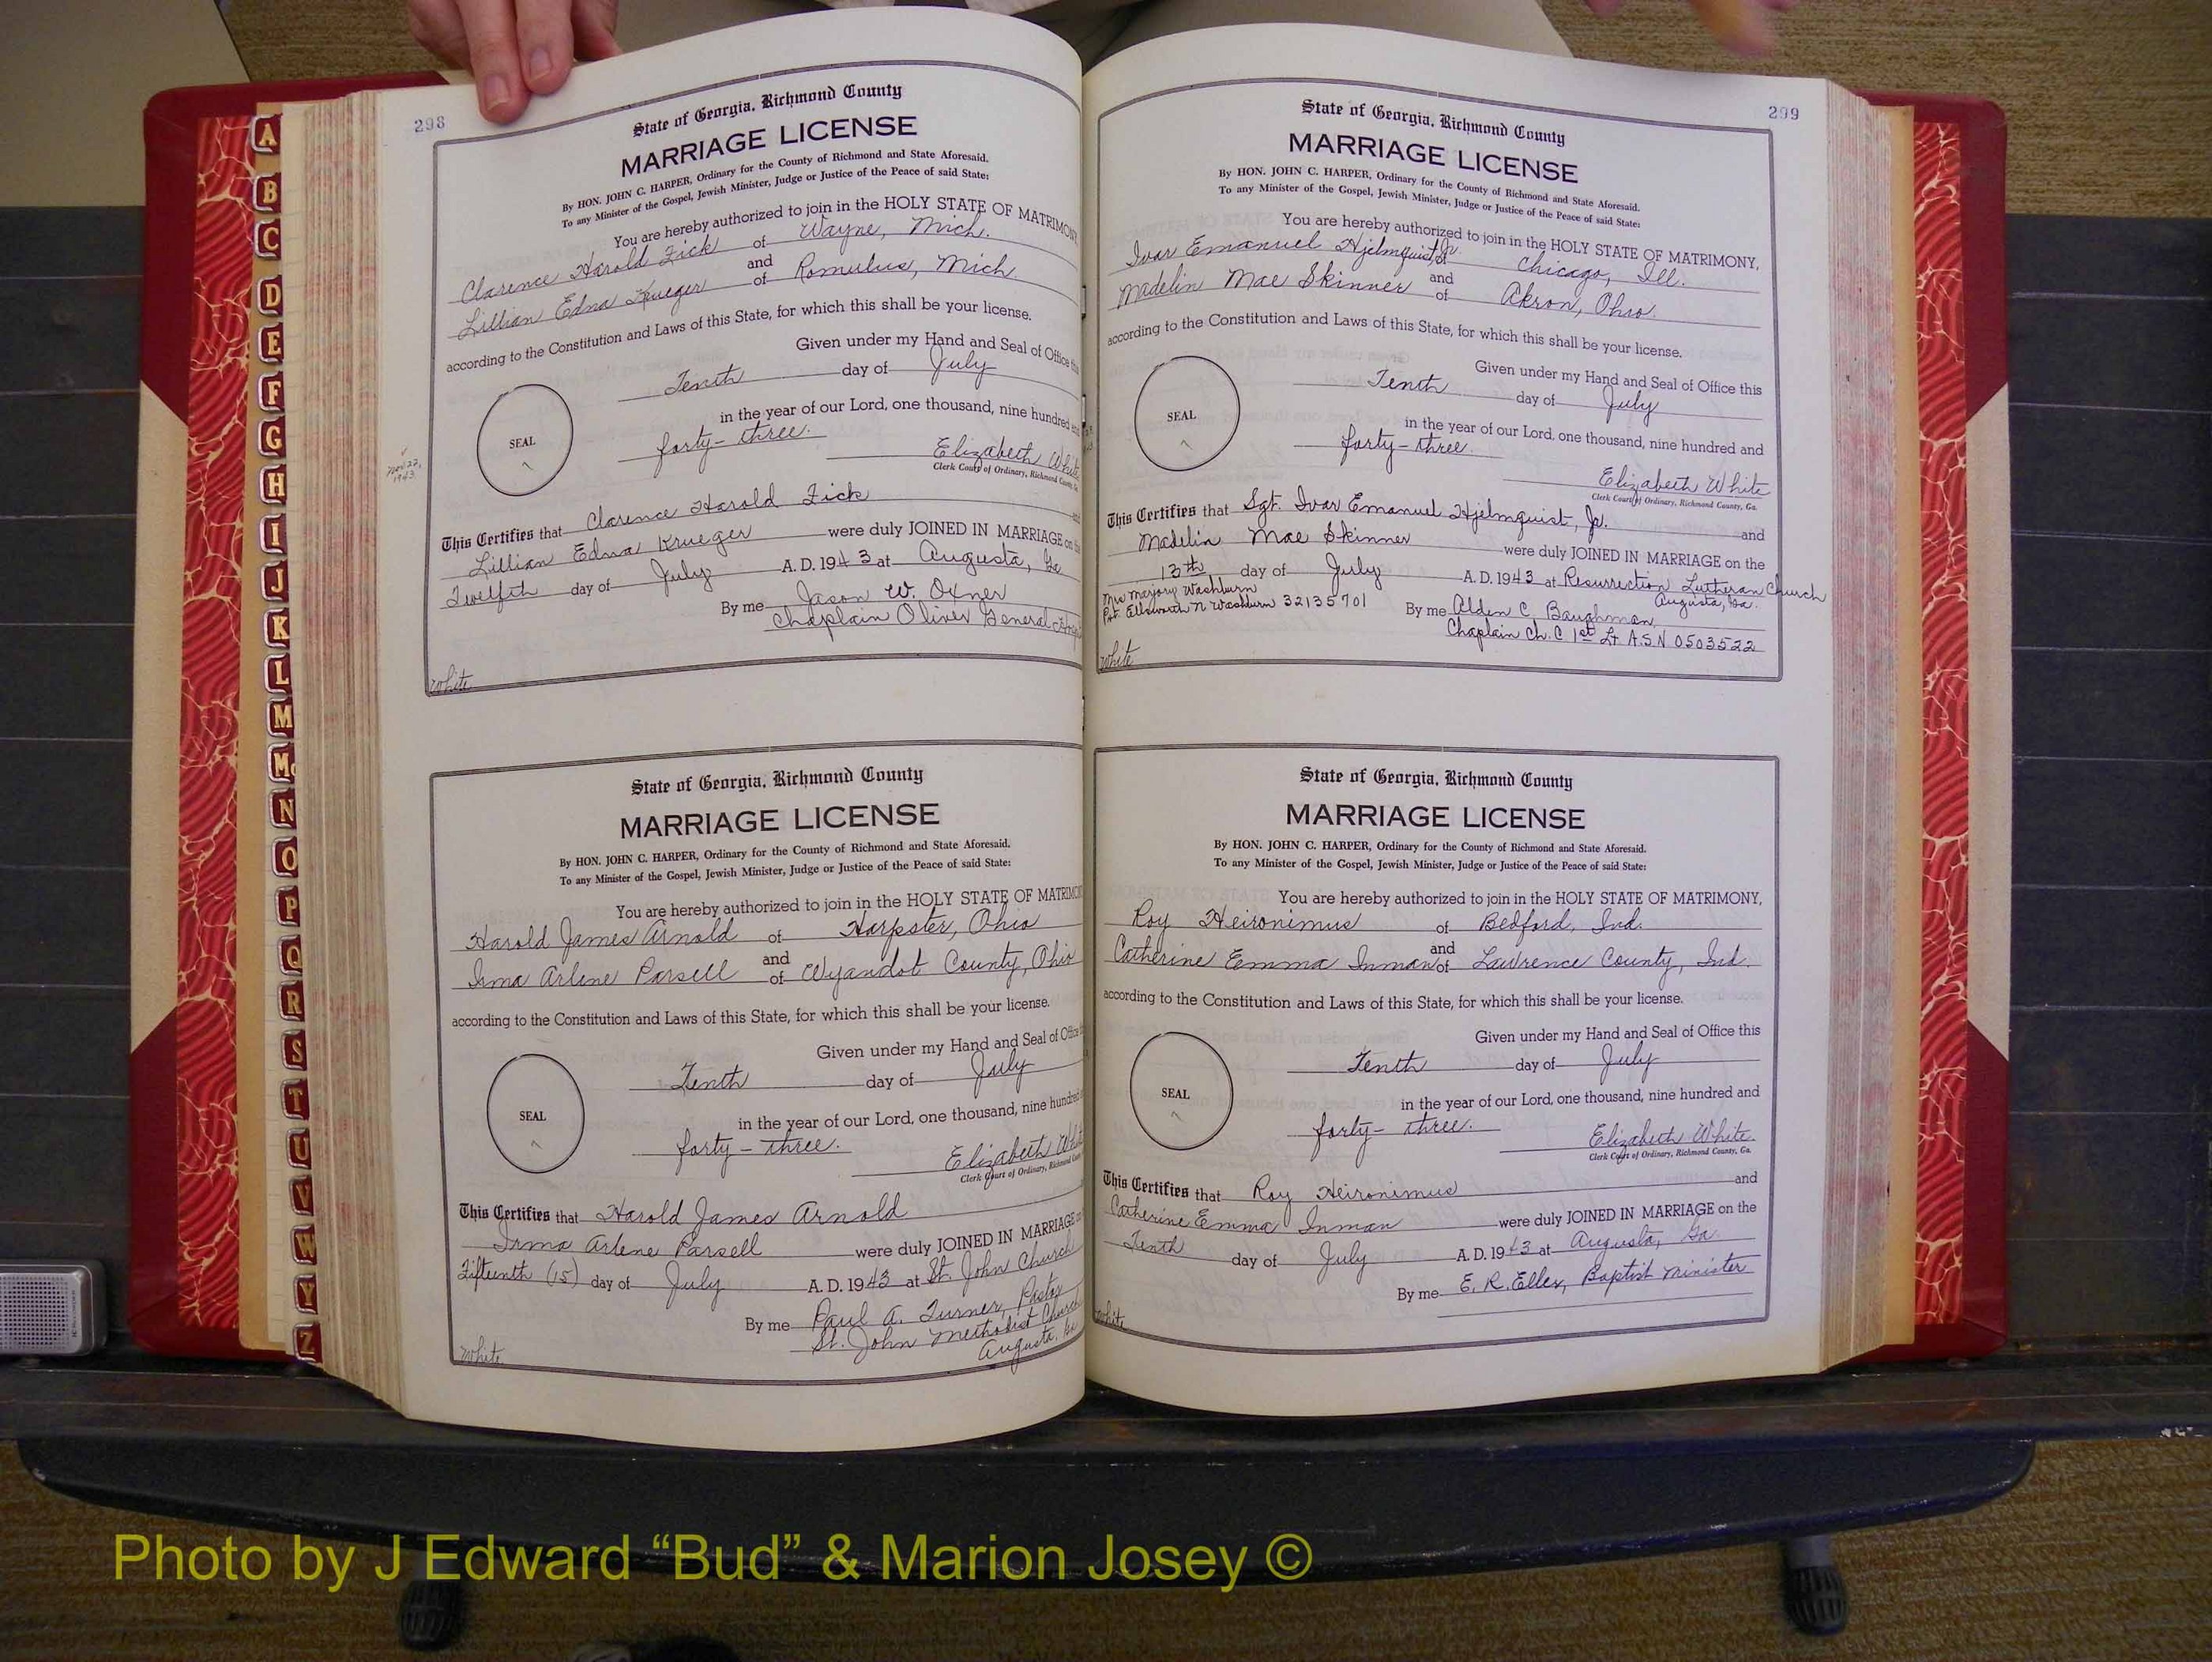 298
State of Georgia, Richmond County
MARRIAGE LICENSE
By HON. JOHN C. HARPER, Ordinary for the County of Richmond and State Aforesaid.
To any Minister of the Gospel, Jewish Minister, Judge or Justice of the Peace of said State:
You are hereby authorized to join in the HOLY STATE OF MATRIMONY
Clarence Harold Zick of Wayne, Mich.
and
Lillian Edna Krueger of Romulus, Mich
according to the Constitution and Laws of this State, for which this shall be your license.
Given under my Hand and Seal of Office this
Tenth day of July
in the year of our Lord, one thousand, nine hundred
SEAL
forty-three.
Elizabeth White
Clerk Court of Ordinary, Richmond County, Ga.
1943
This Certifies that Clarence Harold Zick and
Lillian Edna Krueger were duly JOINED IN MARRIAGE on
Twelfth day of July A. D. 1943 at Augusta, Ga
By me Jason W. Oxner
Chaplain Oliver General
White
State of Georgia, Richmond County
MARRIAGE LICENSE
By HON. JOHN C. HARPER, Ordinary for the County of Richmond and State Aforesaid.
To any Minister of the Gospel, Jewish Minister, Judge or Justice of the Peace of said State:
You are hereby authorized to join in the HOLY STATE OF MATRIMO
Harold James Arnold of Harpster, Ohio
and
Irma Arlene Parsell of Wyandot County, Ohio
according to the Constitution and Laws of this State, for which this shall be your license.
Given under my Hand and Seal of Office
Tenth day of July
in the year of our Lord, one thousand, nine hundred
SEAL
forty-three.
Elizabeth White
Clerk Court of Ordinary, Richmond County
This Certifies that Harold James Arnold
Irma Arlene Parsell were duly JOINED IN MARRIAGE
Fifteenth (15) day of July A. D. 1943 at St. John Church
By me Paul A. Turner, Pastor
St. John Methodist Church
Augusta, Ga
White
299
State of Georgia, Richmond County
MARRIAGE LICENSE
By HON. JOHN C. HARPER, Ordinary for the County of Richmond and State Aforesaid.
To any Minister of the Gospel, Jewish Minister, Judge or Justice of the Peace of said State:
You are hereby authorized to join in the HOLY STATE OF MATRIMONY,
Ivar Emanuel Hjelmquist, Jr. of Chicago, Ill.
and
Madelin Mae Skinner of Akron, Ohio.
according to the Constitution and Laws of this State, for which this shall be your license.
Given under my Hand and Seal of Office this
Tenth day of July
in the year of our Lord, one thousand, nine hundred and
SEAL
forty-three.
Elizabeth White
Clerk Court of Ordinary, Richmond County, Ga.
This Certifies that Sgt. Ivar Emanuel Hjelmquist, Jr. and
Madelin Mae Skinner were duly JOINED IN MARRIAGE on the
13th day of July A. D. 1943 at Resurrection Lutheran Church
Augusta, Ga.
Mrs Marjory Washburn
Pvt. Ellsworth N Washburn 32135701
By me Alden C Baughman,
Chaplain Ch. C 1st Lt A.S.N 0503522
White
State of Georgia, Richmond County
MARRIAGE LICENSE
By HON. JOHN C. HARPER, Ordinary for the County of Richmond and State Aforesaid.
To any Minister of the Gospel, Jewish Minister, Judge or Justice of the Peace of said State:
You are hereby authorized to join in the HOLY STATE OF MATRIMONY,
Roy Heironimus of Bedford, Ind.
and
Catherine Emma Inman of Lawrence County, Ind.
according to the Constitution and Laws of this State, for which this shall be your license.
Given under my Hand and Seal of Office this
Tenth day of July
in the year of our Lord, one thousand, nine hundred and
SEAL
forty-three.
Elizabeth White.
Clerk Court of Ordinary, Richmond County, Ga.
This Certifies that Roy Heironimus and
Catherine Emma Inman were duly JOINED IN MARRIAGE on the
Tenth day of July A. D. 1943 at Augusta, Ga.
By me E. R. Eller, Baptist Minister
White
A
B
C
D
E
F
G
H
I
J
K
L
M
Mc
N
O
P
Q
R
S
T
U
V
W
Y
Z
Photo by J Edward “Bud” & Marion Josey ©